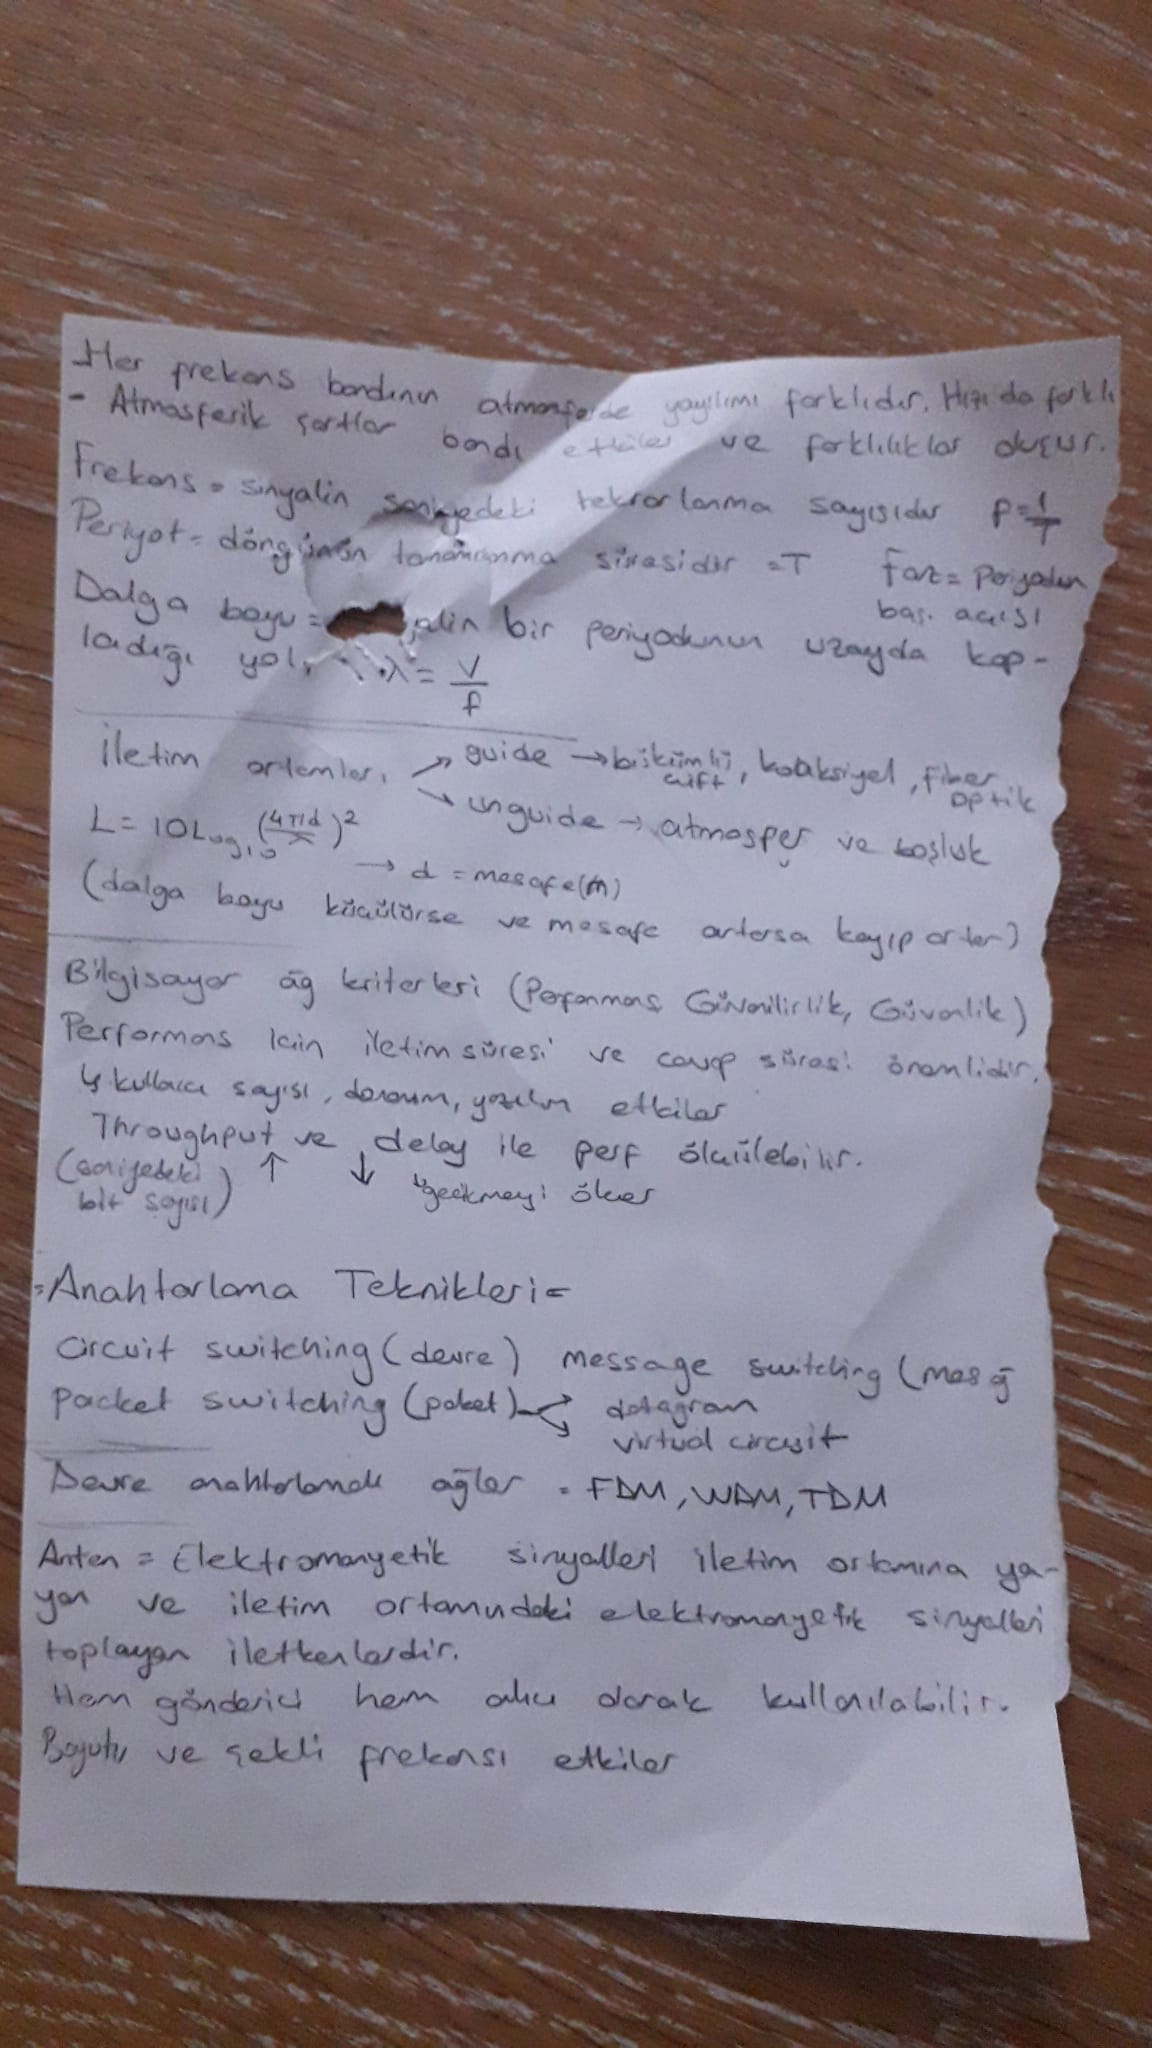 Her frekans bandının atmosferde yayılımı farklıdır. Hızı da farklı
- Atmosferik şartlar bandı etkiler ve farklılıklar oluşur.
Frekans = sinyalin saniyedeki tekrarlanma sayısıdır f=1/T
Periyot = döngünün tamamlanma süresidir =T Faz = Periyodun
baş. açısı
Dalga boyu = yalin bir periyodunun uzayda kap-
ladığı yol. λ = V/f
İletim ortamları → guide → büklümlü çift, koaksiyel, fiber optik
→ unguide → atmosfer ve boşluk
L = 10Log10 (4πd/λ)²
→ d = mesafe(m)
(dalga boyu küçülürse ve mesafe artarsa kayıp artar)
Bilgisayar ağ kriterleri (Performans, Güvenilirlik, Güvenlik)
Performans için iletim süresi ve cevap süresi önemlidir.
↳ kullanıcı sayısı, donanım, yazılım etkiler
Throughput ve delay ile perf ölçülebilir.
(saniyedeki bit sayısı) ↑ ↓ ↳ gecikmeyi ölçer
= Anahtarlama Teknikleri =
Circuit switching (devre) message switching (mesaj
Packet switching (paket) → datagram
→ virtual circuit
Devre anahtarlamalı ağlar = FDM, WDM, TDM
Anten = Elektromanyetik sinyalleri iletim ortamına ya-
yan ve iletim ortamındaki elektromanyetik sinyalleri
toplayan iletkenlerdir.
Hem gönderici hem alıcı olarak kullanılabilir.
Boyutu ve şekli frekansı etkiler